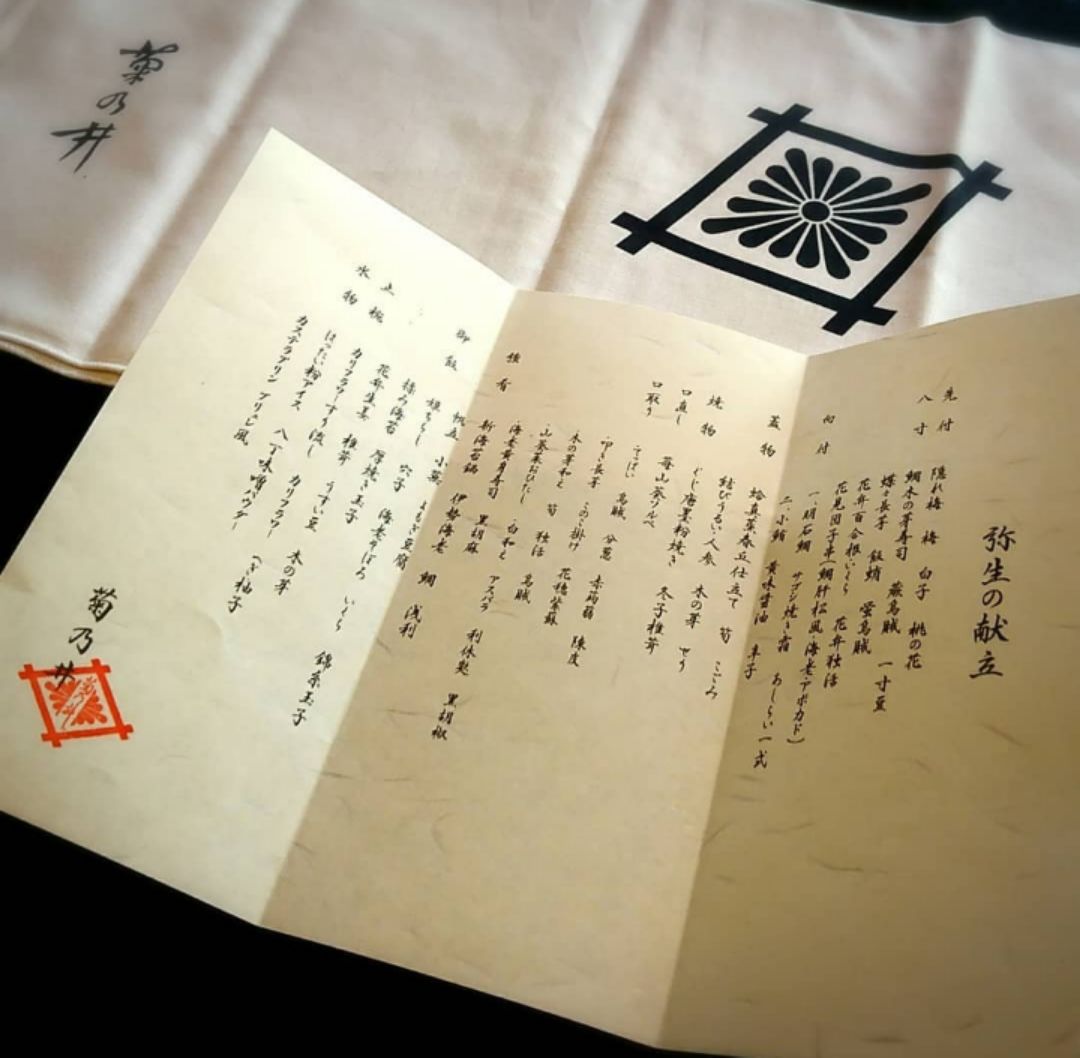 弥生の献立
先付 隠れ梅 梅 白子 桃の花
八寸 鯛木の芽寿司 蕨烏賊 一寸豆
蝶々長芋 飯蛸 蛍烏賊
花弁百合根いくら 花弁独活
花見団子串(鯛肝松風・海老・アボカド)
向付 一、明石鯛 サゴシ焼き霜 あしらい一式
二、小鮪 黄味醤油 辛子
蓋物 蛤真薯春丘仕立て 筍 こごみ
結びうるい人参 木の芽
焼物 ぐじ唐墨粉焼き 冬子椎茸
口直し 苺山葵ソルベ
口取り てっぱい 烏賊 分葱 赤蒟蒻 陳皮
叩き長芋 このこ掛け 花穂紫蘇
木の芽和え 筍 独活 烏賊
山菜おひたし 白和え アスパラ 利休麩 黒胡椒
海老黄身寿司 黒胡麻
強肴 新海苔鍋 伊勢海老 鯛 浅利
帆立 小蕪 よもぎ豆腐
御飯 雛ちらし 穴子 海老そぼろ いくら 錦糸玉子
揉み海苔 厚焼き玉子
花弁生姜 椎茸 うすい豆 木の芽
止椀 カリフラワーすり流し カリフラワー へぎ柚子
水物 はったい粉アイス 八丁味噌パウダー
カステラプリン ブリュレ風
菊乃井
菊乃井